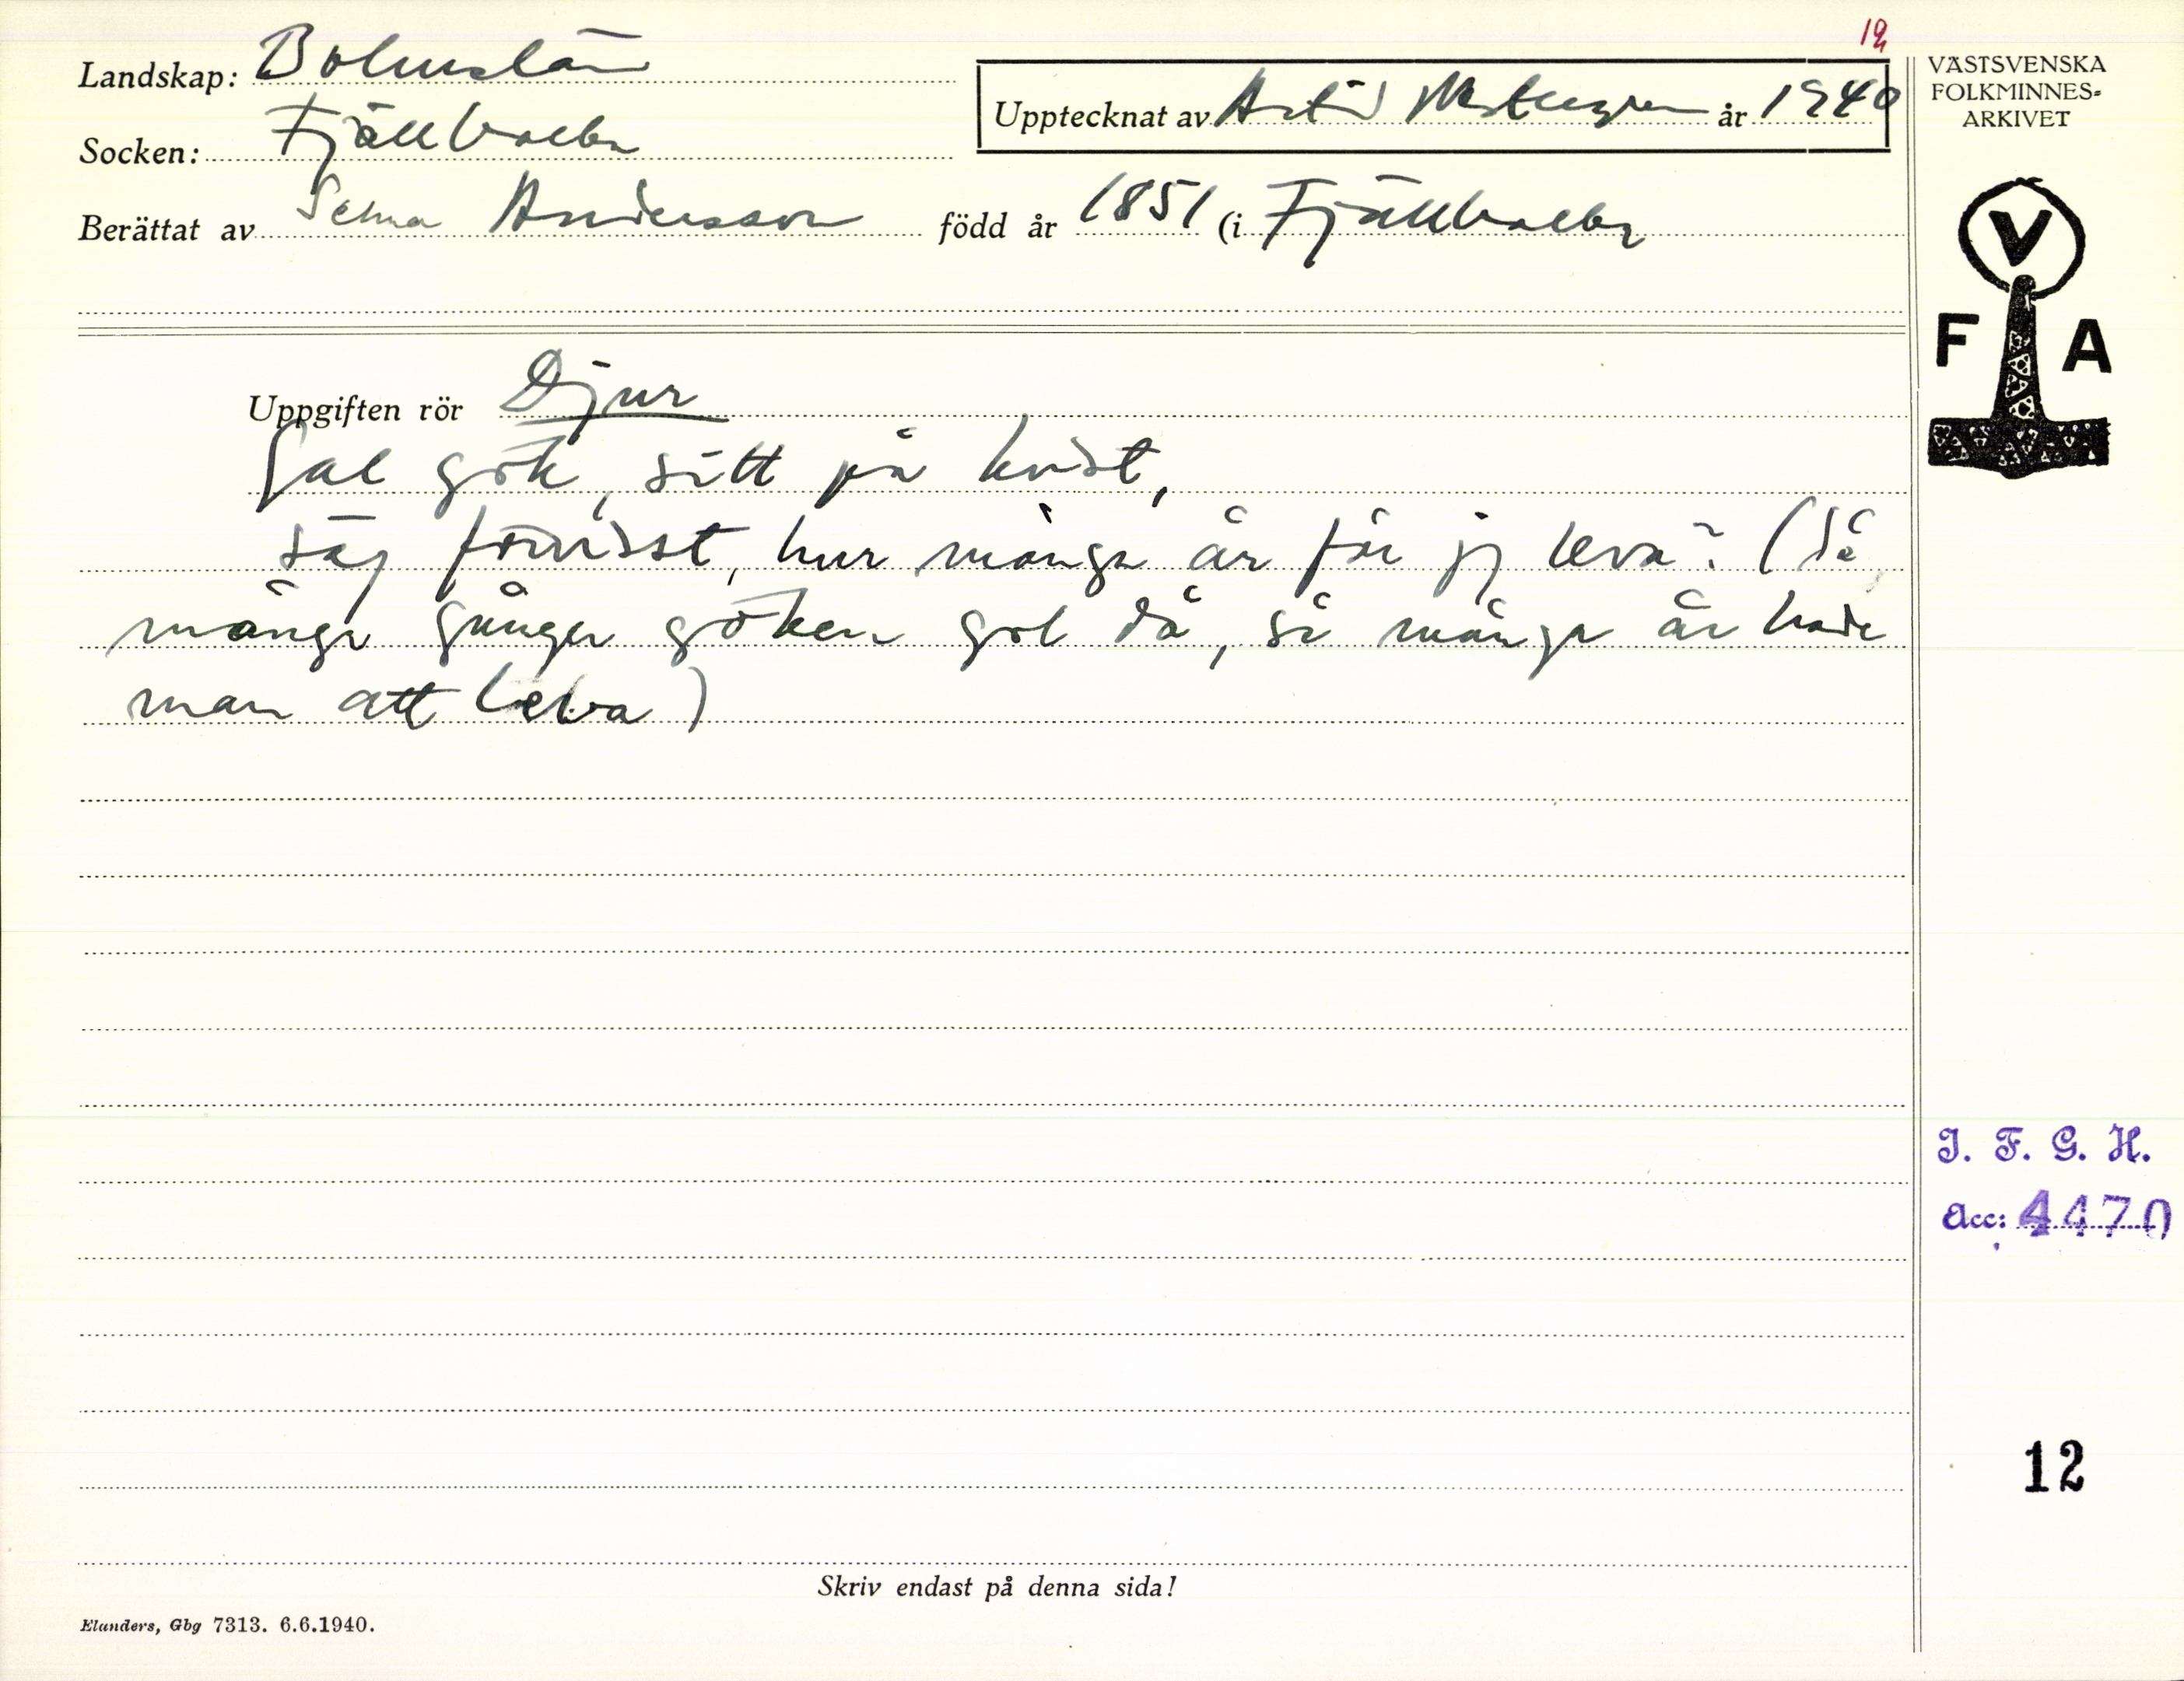 12
Landskap: Bohuslän
Upptecknat av Astrid år 1940
Socken: Fjällbacka
Berättat av Selma Andersson född år 1851 (i Fjällbacka
VÄSTSVENSKA
FOLKMINNES-
ARKIVET
V
F A
Uppgiften rör Djur
Gal gök, sitt på kvist,
säg förvisst, hur många år får jg leva? (Så
många gånger göken gol då, så många år hade
man att leva)
I. F. G. H.
Acc: 4470
12
Skriv endast på denna sida!
Elanders, Gbg 7313. 6.6.1940.